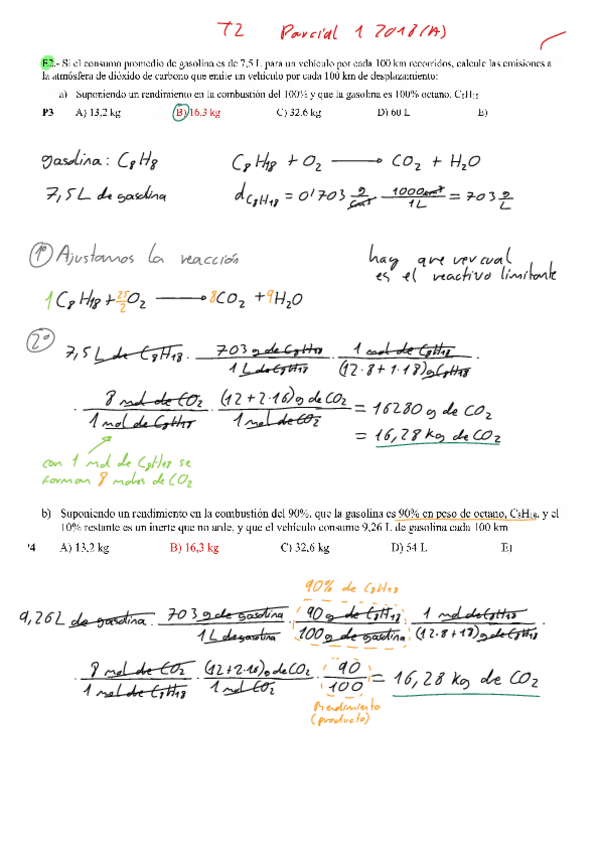 T2 Parcial 1 2018 (A)
E2.- Si el consumo promedio de gasolina es de 7,5 L para un vehículo por cada 100 km recorridos, calcule las emisiones a
la atmósfera de dióxido de carbono que emite un vehículo por cada 100 km de desplazamiento:
a) Suponiendo un rendimiento en la combustión del 100% y que la gasolina es 100% octano, C₈H₁₈
P3 A) 13,2 kg B) 16.3 kg C) 32.6 kg D) 60 L E)
gasolina: C₈H₈ C₈H₁₈ + O₂ → CO₂ + H₂O
7,5 L de gasolina d C₈H₁₈ = 0'703 g/cm³ · 1000cm³/1L = 703 g/L
1º Ajustamos la reacción
hay que ver cual
es el reactivo limitante
1 C₈H₁₈ + 25/2 O₂ → 8CO₂ + 9H₂O
2º 7,5 L de C₈H₁₈ · 703 g de C₈H₁₈ / 1 L de C₈H₁₈ · 1 mol de C₈H₁₈ / (12·8+1·18) g C₈H₁₈ ·
· 8 mol de CO₂ / 1 mol de C₈H₁₈ · (12+2·16) g de CO₂ / 1 mol de CO₂ = 16280 g de CO₂
= 16,28 kg de CO₂
con 1 mol de C₈H₁₈ se
forman 8 moles de CO₂
b) Suponiendo un rendimiento en la combustión del 90%, que la gasolina es 90% en peso de octano, C₈H₁₈, y el
10% restante es un inerte que no arde, y que el vehículo consume 9,26 L de gasolina cada 100 km
'4 A) 13,2 kg B) 16,3 kg C) 32,6 kg D) 54 L E)
90% de C₈H₁₈
9,26 L de gasolina · 703 g de gasolina / 1 L de gasolina · 90 g de C₈H₁₈ / 100 g de gasolina · 1 mol de C₈H₁₈ / (12·8+18) g de C₈H₁₈ ·
· 8 mol de CO₂ / 1 mol de C₈H₁₈ · (12+2·16) g de CO₂ / 1 mol CO₂ · 90/100 = 16,28 kg de CO₂
Rendimiento
(producto)